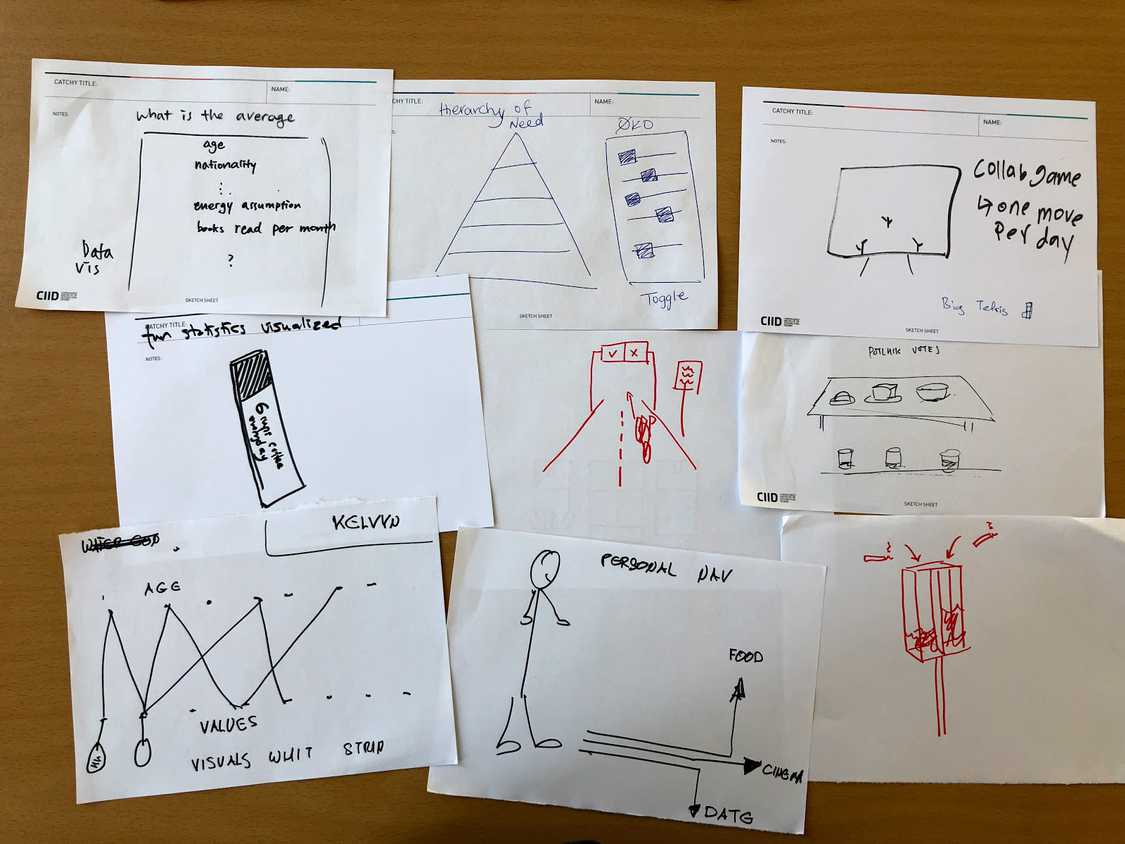 CATCHY TITLE:
NAME:
NOTES:
What is the average
age
nationality
energy assumption
books read per month
?
Data
vis
CIID
SKETCH SHEET
CHY TITLE:
NAME:
Hierarchy of
Need
ØKO
Toggle
SKETCH SHEET
CATCHY TITLE:
NAME:
NOTES:
Collab game
↳ one move
per day
Bing Tetris
CIID
SKETCH SHEET
CATCHY TITLE:
fun statistics visualized
NOTES:
6 cups coffee
everyday
V X
POTLUIK VOTES
CIID
SKETCH SHEET
KELVYN
AGE
VALUES
VISUALS WHIT STRIP
PERSONAL NAV
FOOD
CINEMA
DATG